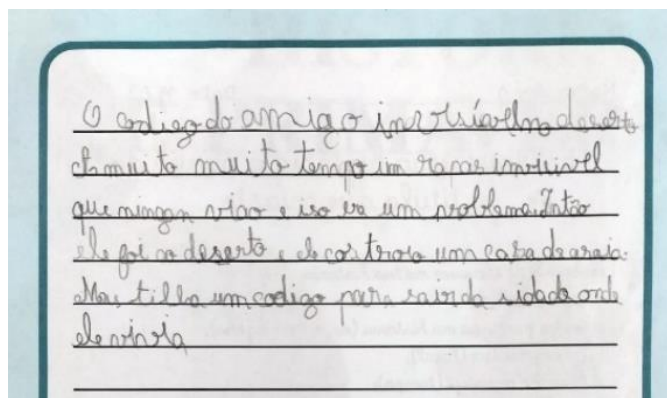 O codigo do amigo invisível no deserto
A muito muito tempo um invisivel
que ningan viao e iso era um problema. Intão
ele foi no deserto e ele costroio um casa de areia.
Mas tilla um codigo para sair da sidade onde
ele vivia